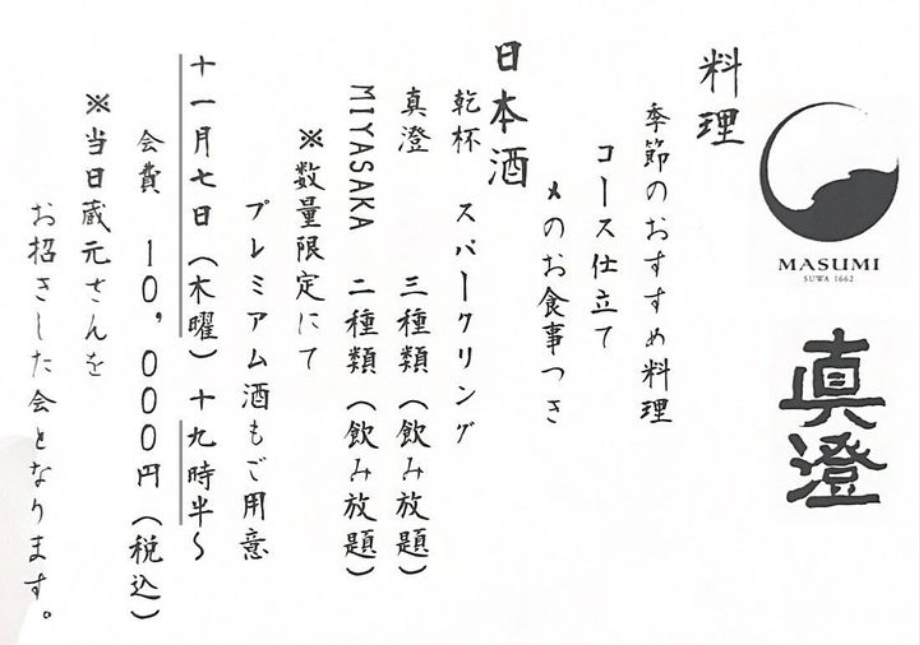 MASUMI
SUWA 1662
真澄
料理
季節のおすすめ料理
コース仕立て
〆のお食事つき
日本酒
乾杯 スパークリング
真澄 三種類（飲み放題）
MIYASAKA 二種類（飲み放題）
※数量限定にて
プレミアム酒もご用意
十一月七日（木曜）十九時半〜
会費 一0,000円（税込）
※当日蔵元さんを
お招きした会となります。